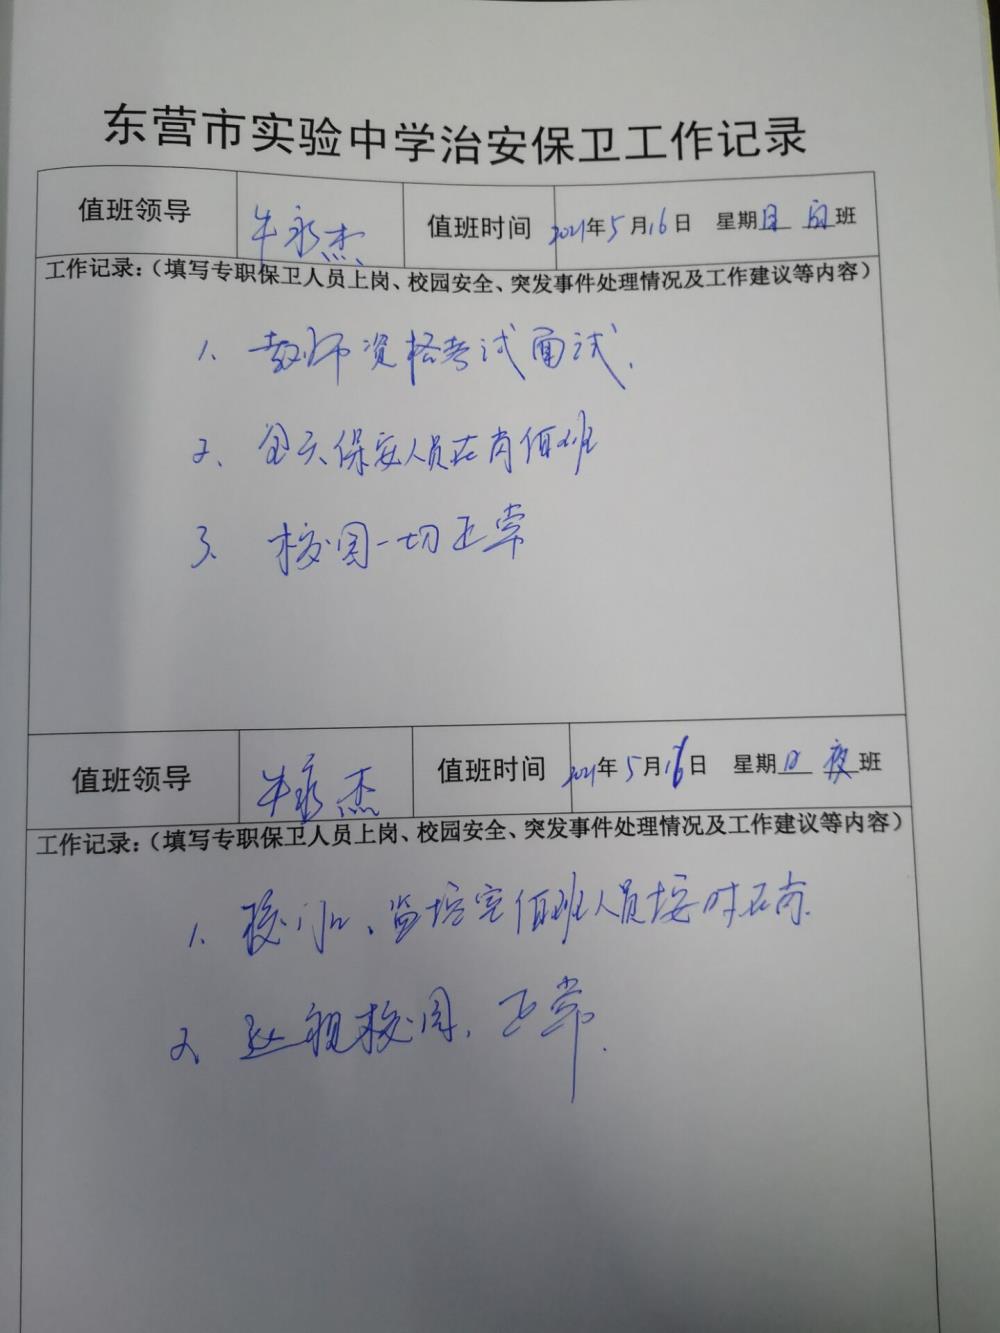 东营市实验中学治安保卫工作记录
值班领导 牛永杰 值班时间 2021年5月16日 星期日 白班
工作记录：（填写专职保卫人员上岗、校园安全、突发事件处理情况及工作建议等内容）
1、教师资格考试面试.
2、全天保安人员在岗值班
3、校园一切正常
值班领导 牛永杰 值班时间 2021年5月16日 星期日 夜班
工作记录：（填写专职保卫人员上岗、校园安全、突发事件处理情况及工作建议等内容）
1、校门口、监控室值班人员按时在岗.
2、巡视校园，正常.